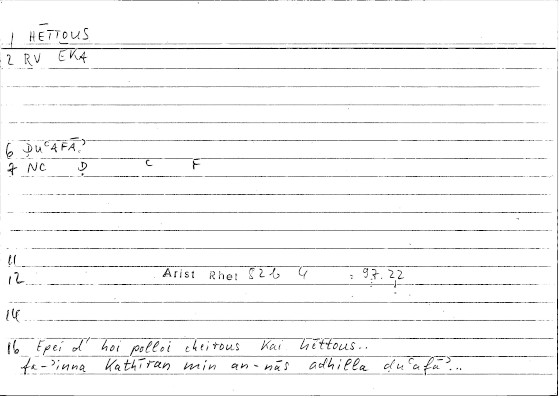 1 HĒTTOUS
2 RV EKA
6 ḌUʿAFĀʾ
7 NC Ḍ ʿ F
11
12 Arist Rhet 82b 4 : 97.22
14
16 Epei d' hoi polloi cheirous kai hēttous..
fa-ʾinna Kathīran min an-nās adhilla ḍuʿafāʾ...